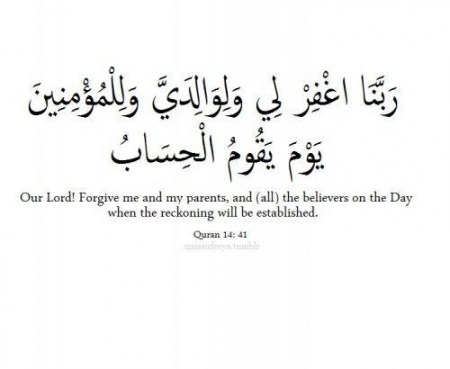 رَبَّنَا اغْفِرْ لِي وَلِوَالِدَيَّ وَلِلْمُؤْمِنِينَ
يَوْمَ يَقُومُ الْحِسَابُ
Our Lord! Forgive me and my parents, and (all) the believers on the Day
when the reckoning will be established.
Quran 14: 41